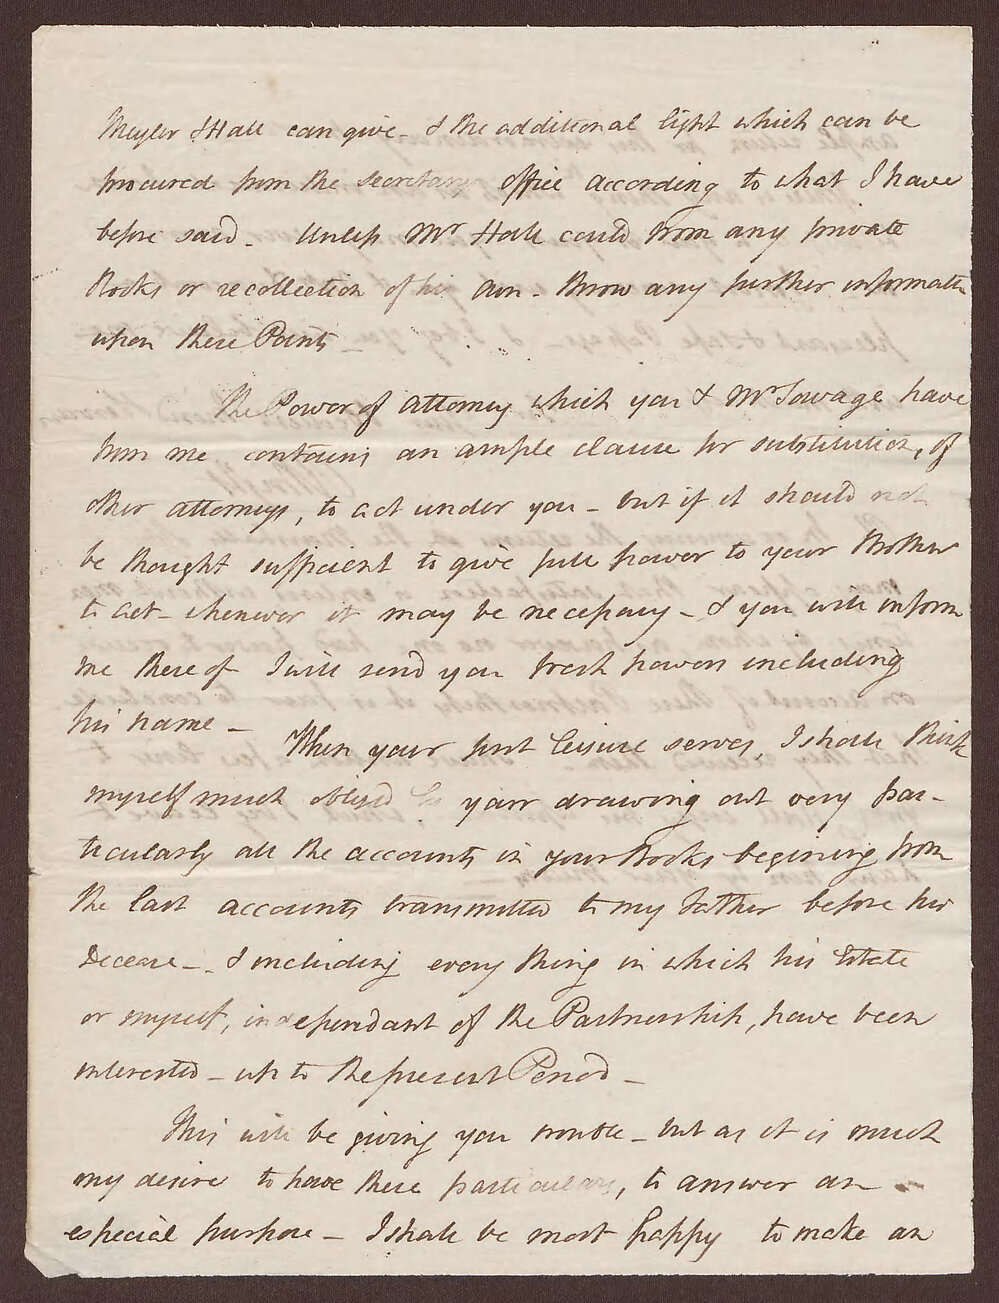 Meyler & Hall can give - & the additional light which can be
procured from the Secretarys office according to what I have
before said - Unless Mr Hall could from any private
Books or recollection of his own - throw any further informatn
upon these Points -
The Power of Attorney which you & Mr Savage have
from me contains an ample clause for substitution, of
other attorneys, to act under you - but if it should not
be thought sufficient to give full power to your Brother
to act - whenever it may be necessary - & you will inform
me thereof I will send you fresh powers including
his name -
When your first leisure serves, I shall think
myself much obliged by your drawing out very par-
ticularly all the accounts in your Books begining from
the last accounts transmitted to my Father before his
Decease - & including every thing in which his Estate
or myself, independant of the Partnership, have been
interested - up to the present Period -
This will be giving you trouble - but as it is much
my desire to have these particulars, to answer an
especial purpose - I shall be most happy to make an